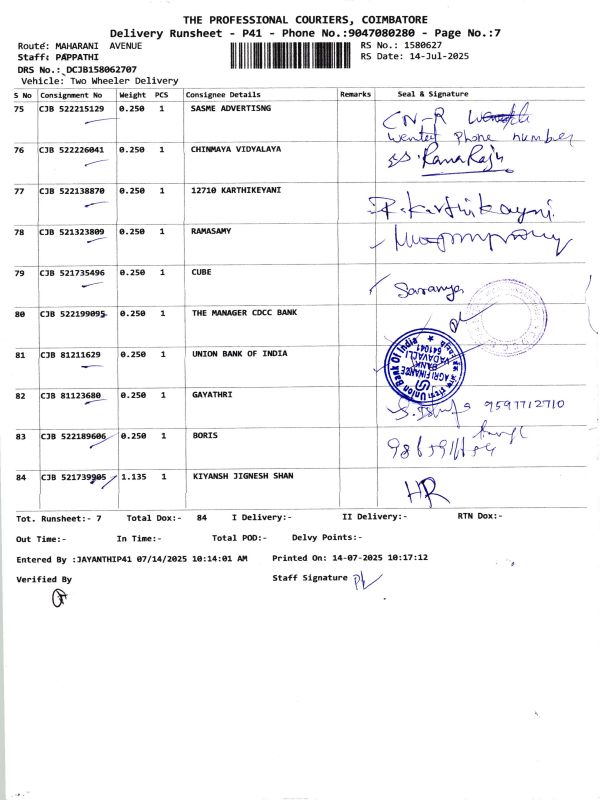 THE PROFESSIONAL COURIERS, COIMBATORE
Delivery Runsheet - P41 - Phone No.:9047080280 - Page No.:7
Route: MAHARANI AVENUE RS No.: 1580627
Staff: PAPPATHI RS Date: 14-Jul-2025
DRS No.: DCJB158062707
Vehicle: Two Wheeler Delivery
S No Consignment No Weight PCS Consignee Details Remarks Seal & Signature
75 CJB 522215129 0.250 1 SASME ADVERTISNG CN-R
wented Phone number
76 CJB 522226041 0.250 1 CHINMAYA VIDYALAYA Rama Raju
77 CJB 522138870 0.250 1 12710 KARTHIKEYANI
78 CJB 521323809 0.250 1 RAMASAMY
79 CJB 521735496 0.250 1 CUBE Saranya
80 CJB 522199095 0.250 1 THE MANAGER CDCC BANK
81 CJB 81211629 0.250 1 UNION BANK OF INDIA Union Bank Of India
AGRI FINANCE
BANK
VADAVALLI
641041
82 CJB 81123680 0.250 1 GAYATHRI 9597712710
83 CJB 522189606 0.250 1 BORIS
84 CJB 521739905 1.135 1 KIYANSH JIGNESH SHAN HR
Tot. Runsheet:- 7 Total Dox:- 84 I Delivery:- II Delivery:- RTN Dox:-
Out Time:- In Time:- Total POD:- Delvy Points:-
Entered By :JAYANTHIP41 07/14/2025 10:14:01 AM Printed On: 14-07-2025 10:17:12
Verified By Staff Signature